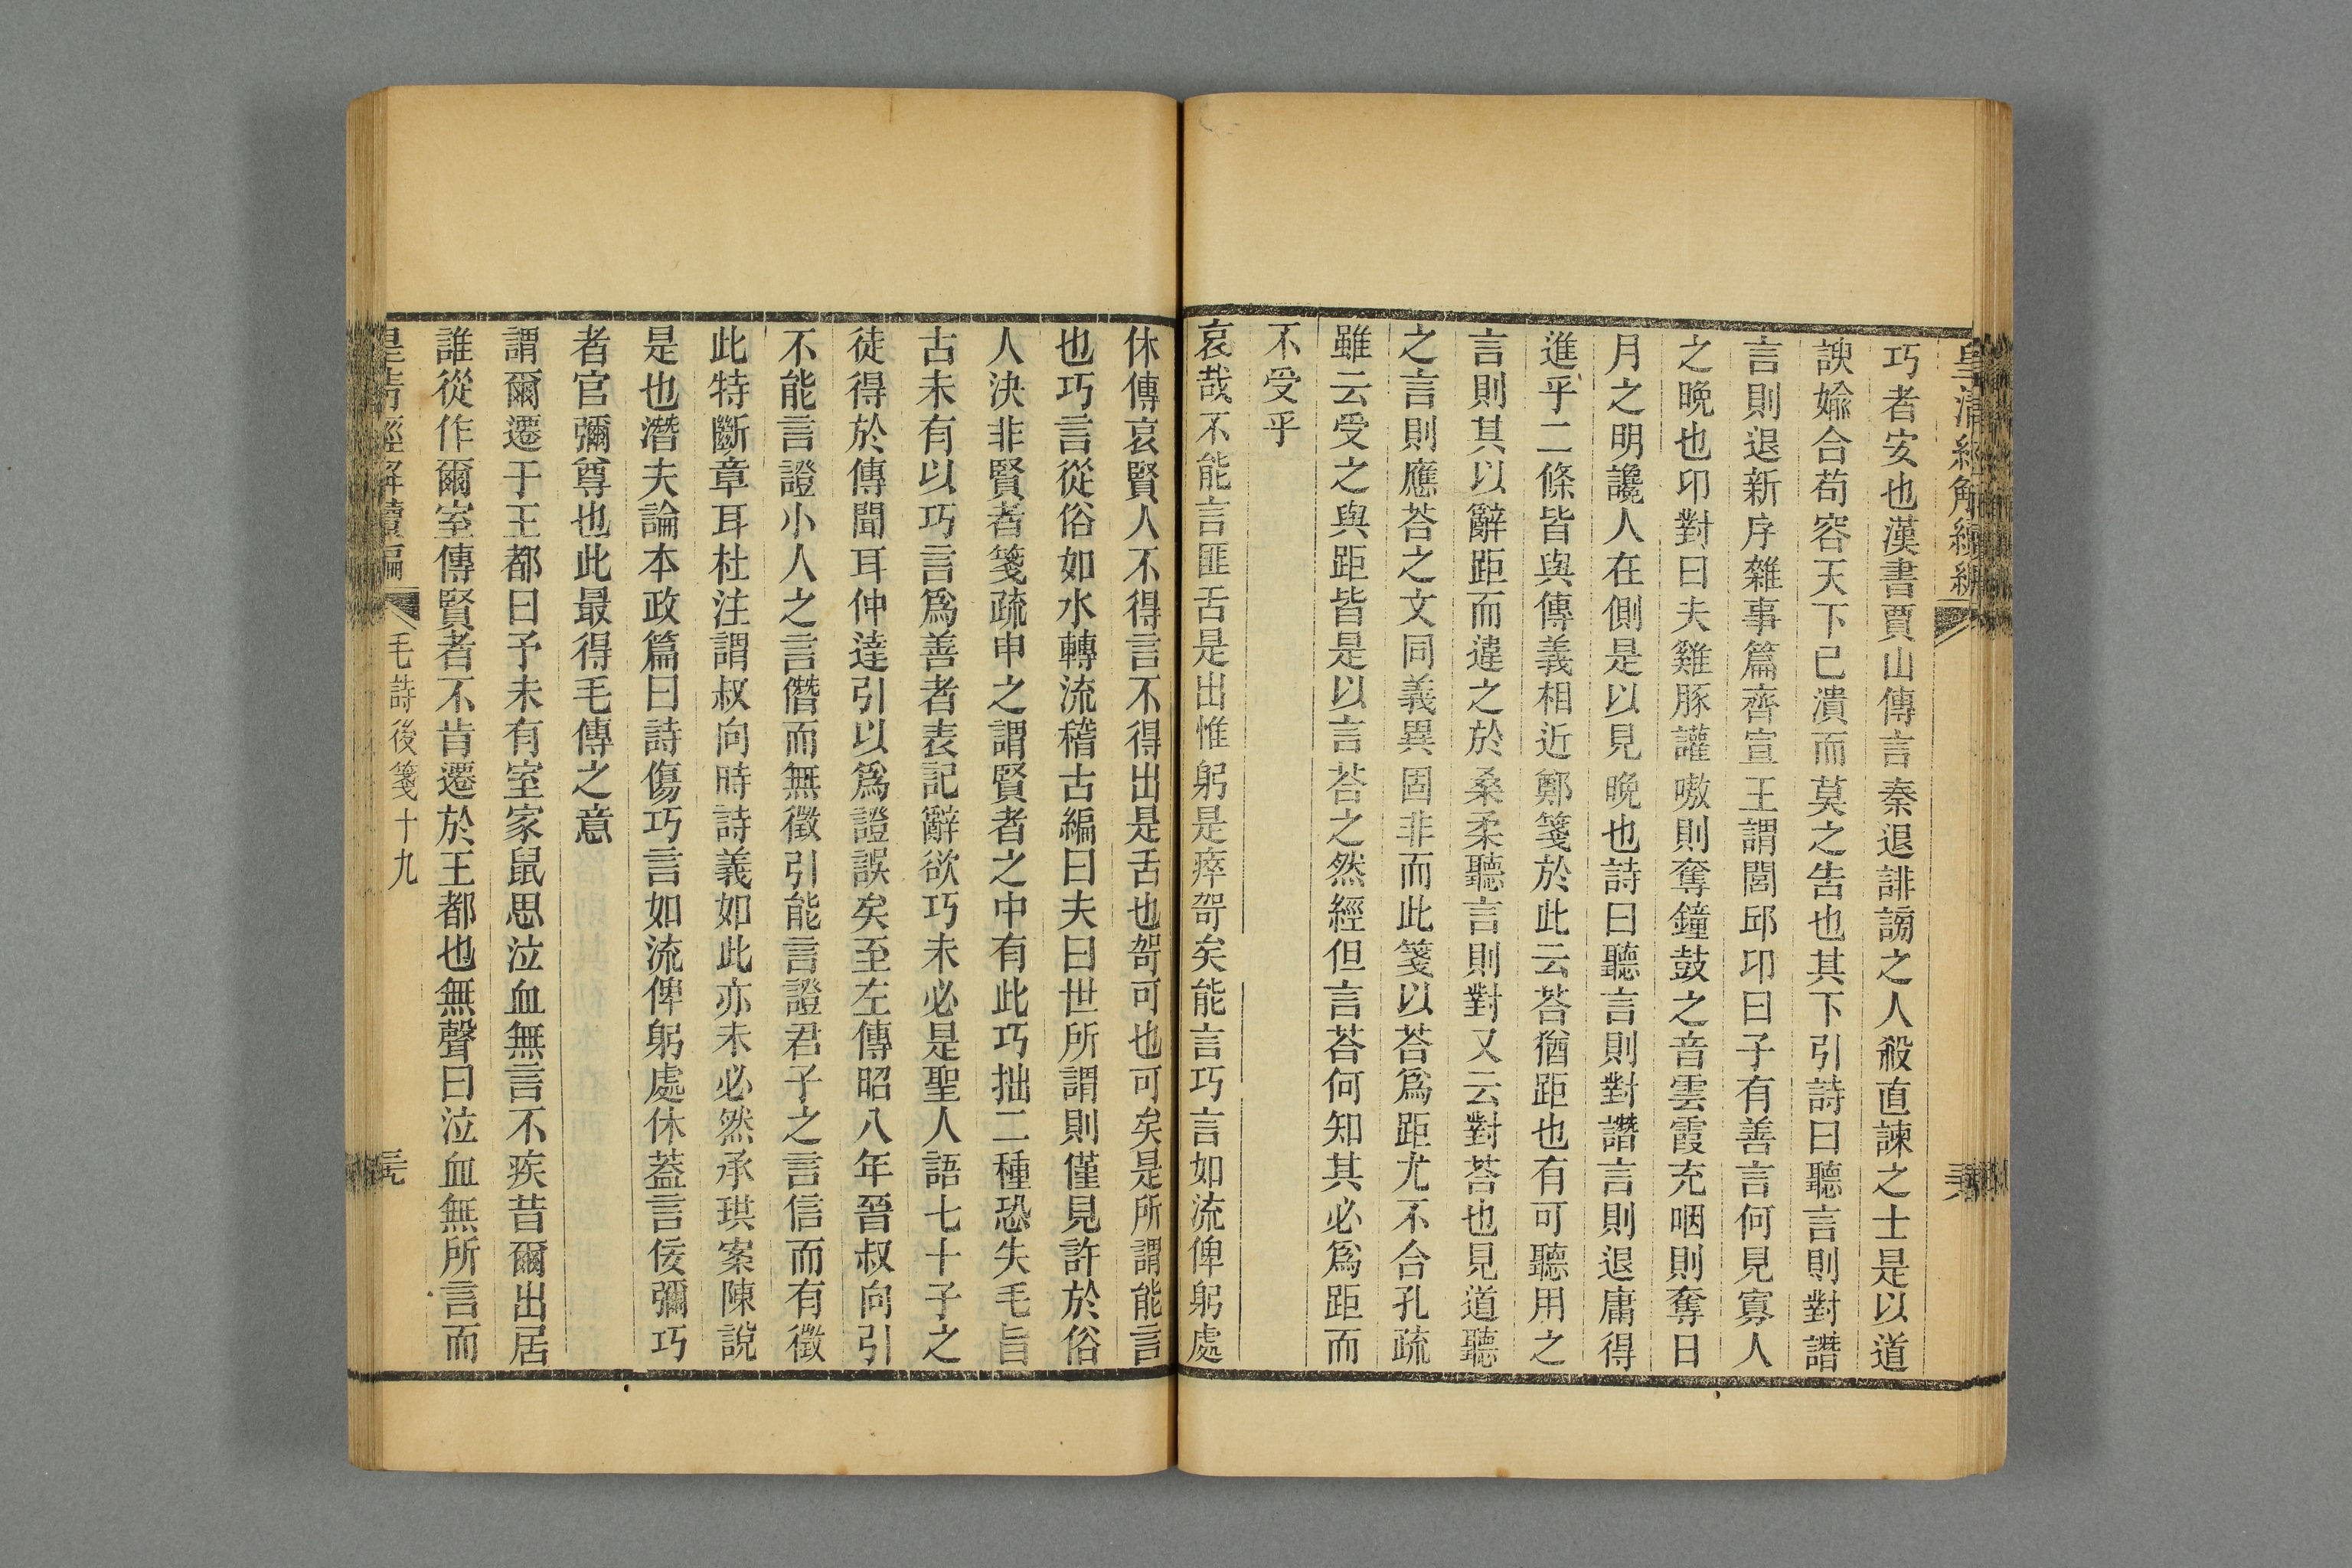 皇清經解續編
巧者安也漢書賈山傳言秦退誹謗之人殺直諫之士是以道
諛媮合苟容天下已潰而莫之告也其下引詩曰聽言則對譖
言則退新序雜事篇齊宣王謂閭邱卬曰子有善言何見寡人
之晚也卬對曰夫雞豚讙嗷則奪鐘鼓之音雲霞充咽則奪日
月之明讒人在側是以見晚也詩曰聽言則對譖言則退庸得
進乎二條皆與傳義相近鄭箋於此云荅猶距也有可聽用之
言則其以辭距而違之於桑柔聽言則對又云對荅也見道聽
之言則應荅之文同義異固非而此箋以荅爲距尤不合孔疏
雖云受之與距皆是以言荅之然經但言荅何知其必爲距而
不受乎
哀哉不能言匪舌是出惟躬是瘁哿矣能言巧言如流俾躬處
休傳哀賢人不得言不得出是舌也哿可也可矣是所謂能言
也巧言從俗如水轉流稽古編曰夫曰世所謂則僅見許於俗
人決非賢者箋疏申之謂賢者之中有此巧拙二種恐失毛旨
古未有以巧言爲善者表記辭欲巧未必是聖人語七十子之
徒得於傳聞耳仲達引以爲證誤矣至左傳昭八年晉叔向引
不能言證小人之言僭而無徵引能言證君子之言信而有徵
此特斷章耳杜注謂叔向時詩義如此亦未必然承珙案陳說
是也潛夫論本政篇曰詩傷巧言如流俾躬處休蓋言佞彌巧
者官彌尊也此最得毛傳之意
謂爾遷于王都曰予未有室家鼠思泣血無言不疾昔爾出居
誰從作爾室傳賢者不肯遷於王都也無聲曰泣血無所言而
皇清經解續編
毛詩後箋十九